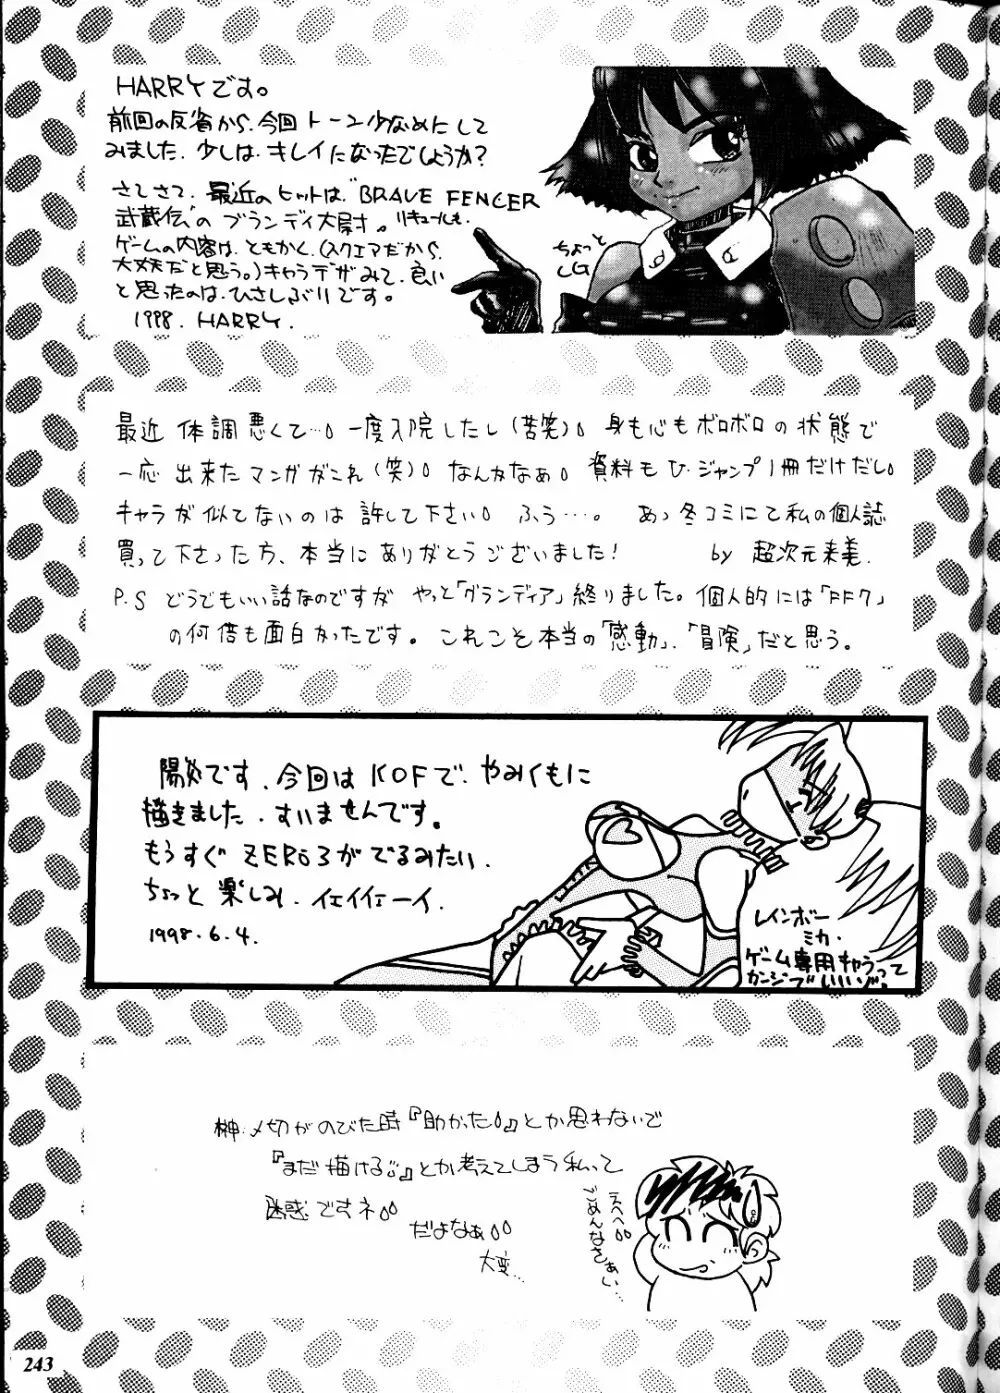 HARRYです。
前回の反省から、今回トーン少なめにして
みました。少しは、キレイになったでしょうか？
さてさて、最近のヒットは"BRAVE FENCER
武蔵伝"のブランディ大尉。リキュールも。
ゲームの内容は、ともかく、(スクエアだから、
大丈夫だと思う。)キャラデザみて、良い
と思ったのは、ひさしぶりです。
1998. HARRY.
ちょっと
CG
最近 体調悪くて…。一度入院したし(苦笑)。身も心もボロボロの状態で
一応 出来たマンガがこれ(笑)。なんかなぁ。資料もV・ジャンプ1冊だけだし。
キャラが似てないのは 許して下さい。ふう…。あっ冬コミにて私の個人誌
買って下さった方、本当にありがとうございました! by 超次元来美.
P.S どうでもいい話なのですが やっと「グランディア」終りました。個人的には「FF7」
の何倍も面白かったです。これこそ本当の「感動」、「冒険」だと思う。
陽炎です。今回はKOFで、やみくもに
描きました。すいませんです。
もうすぐ ZERO3がでるみたい。
ちょっと楽しみ。イェイイェーイ.
1998.6.4.
レインボー
ミカ.
ゲーム専用キャラって
カンジでいいゾ?
榊:〆切がのびた時『助かった。』とか思わないで
『まだ描ける。』とか考えてしまう私って
迷惑ですネ。
だよなぁ。
大変…
えへへ。
ごめんなさぁい…
243